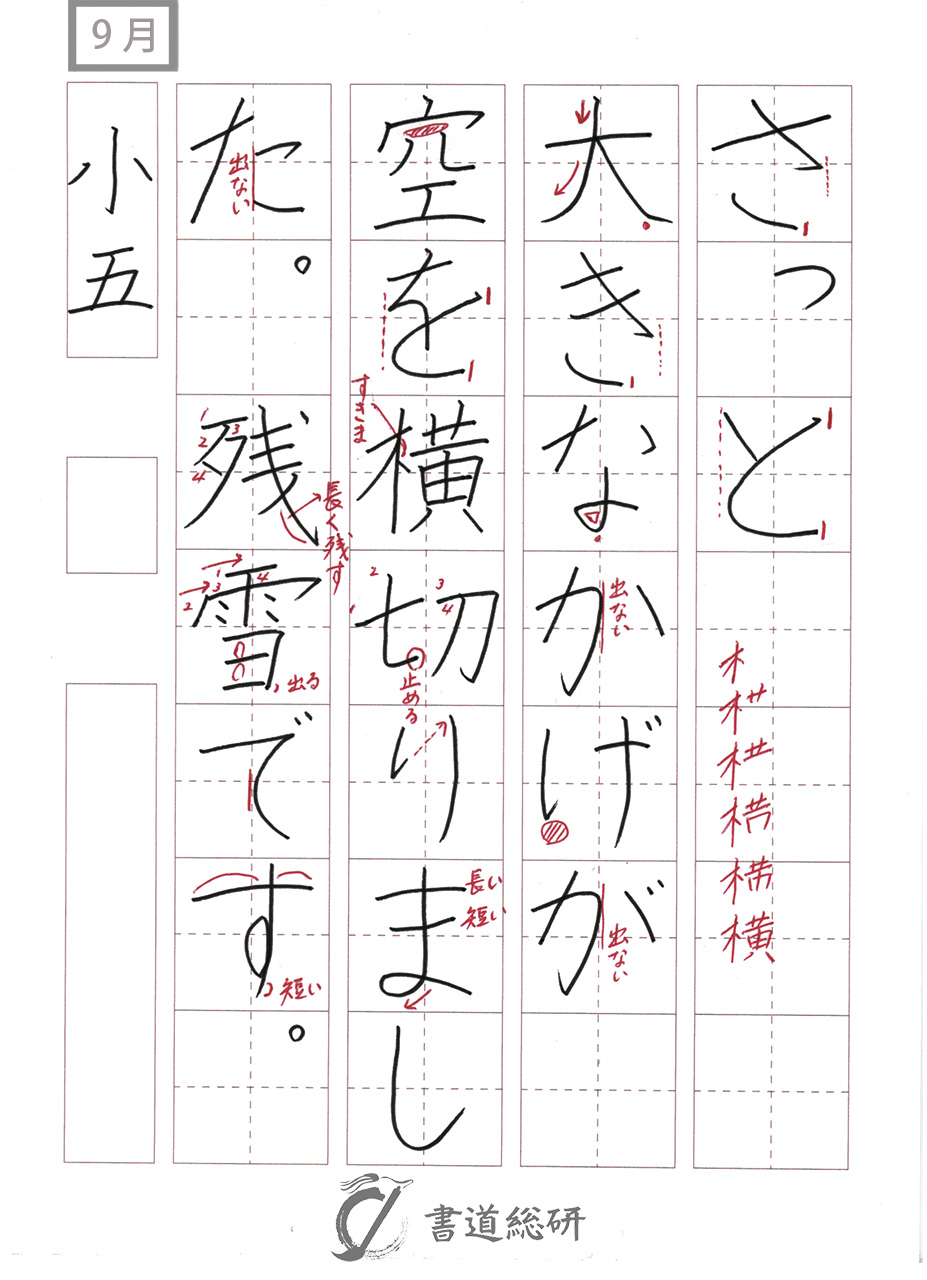 9月
さっと
木
横
大きなかげが
出ない
出ない
空を横切りまし
すきま
止める
長い
短い
た。残雪です。
出ない
1
2
3
4
長く残す
1
2
3
4
出る
短い
1
2
3
4
小五
書道総研